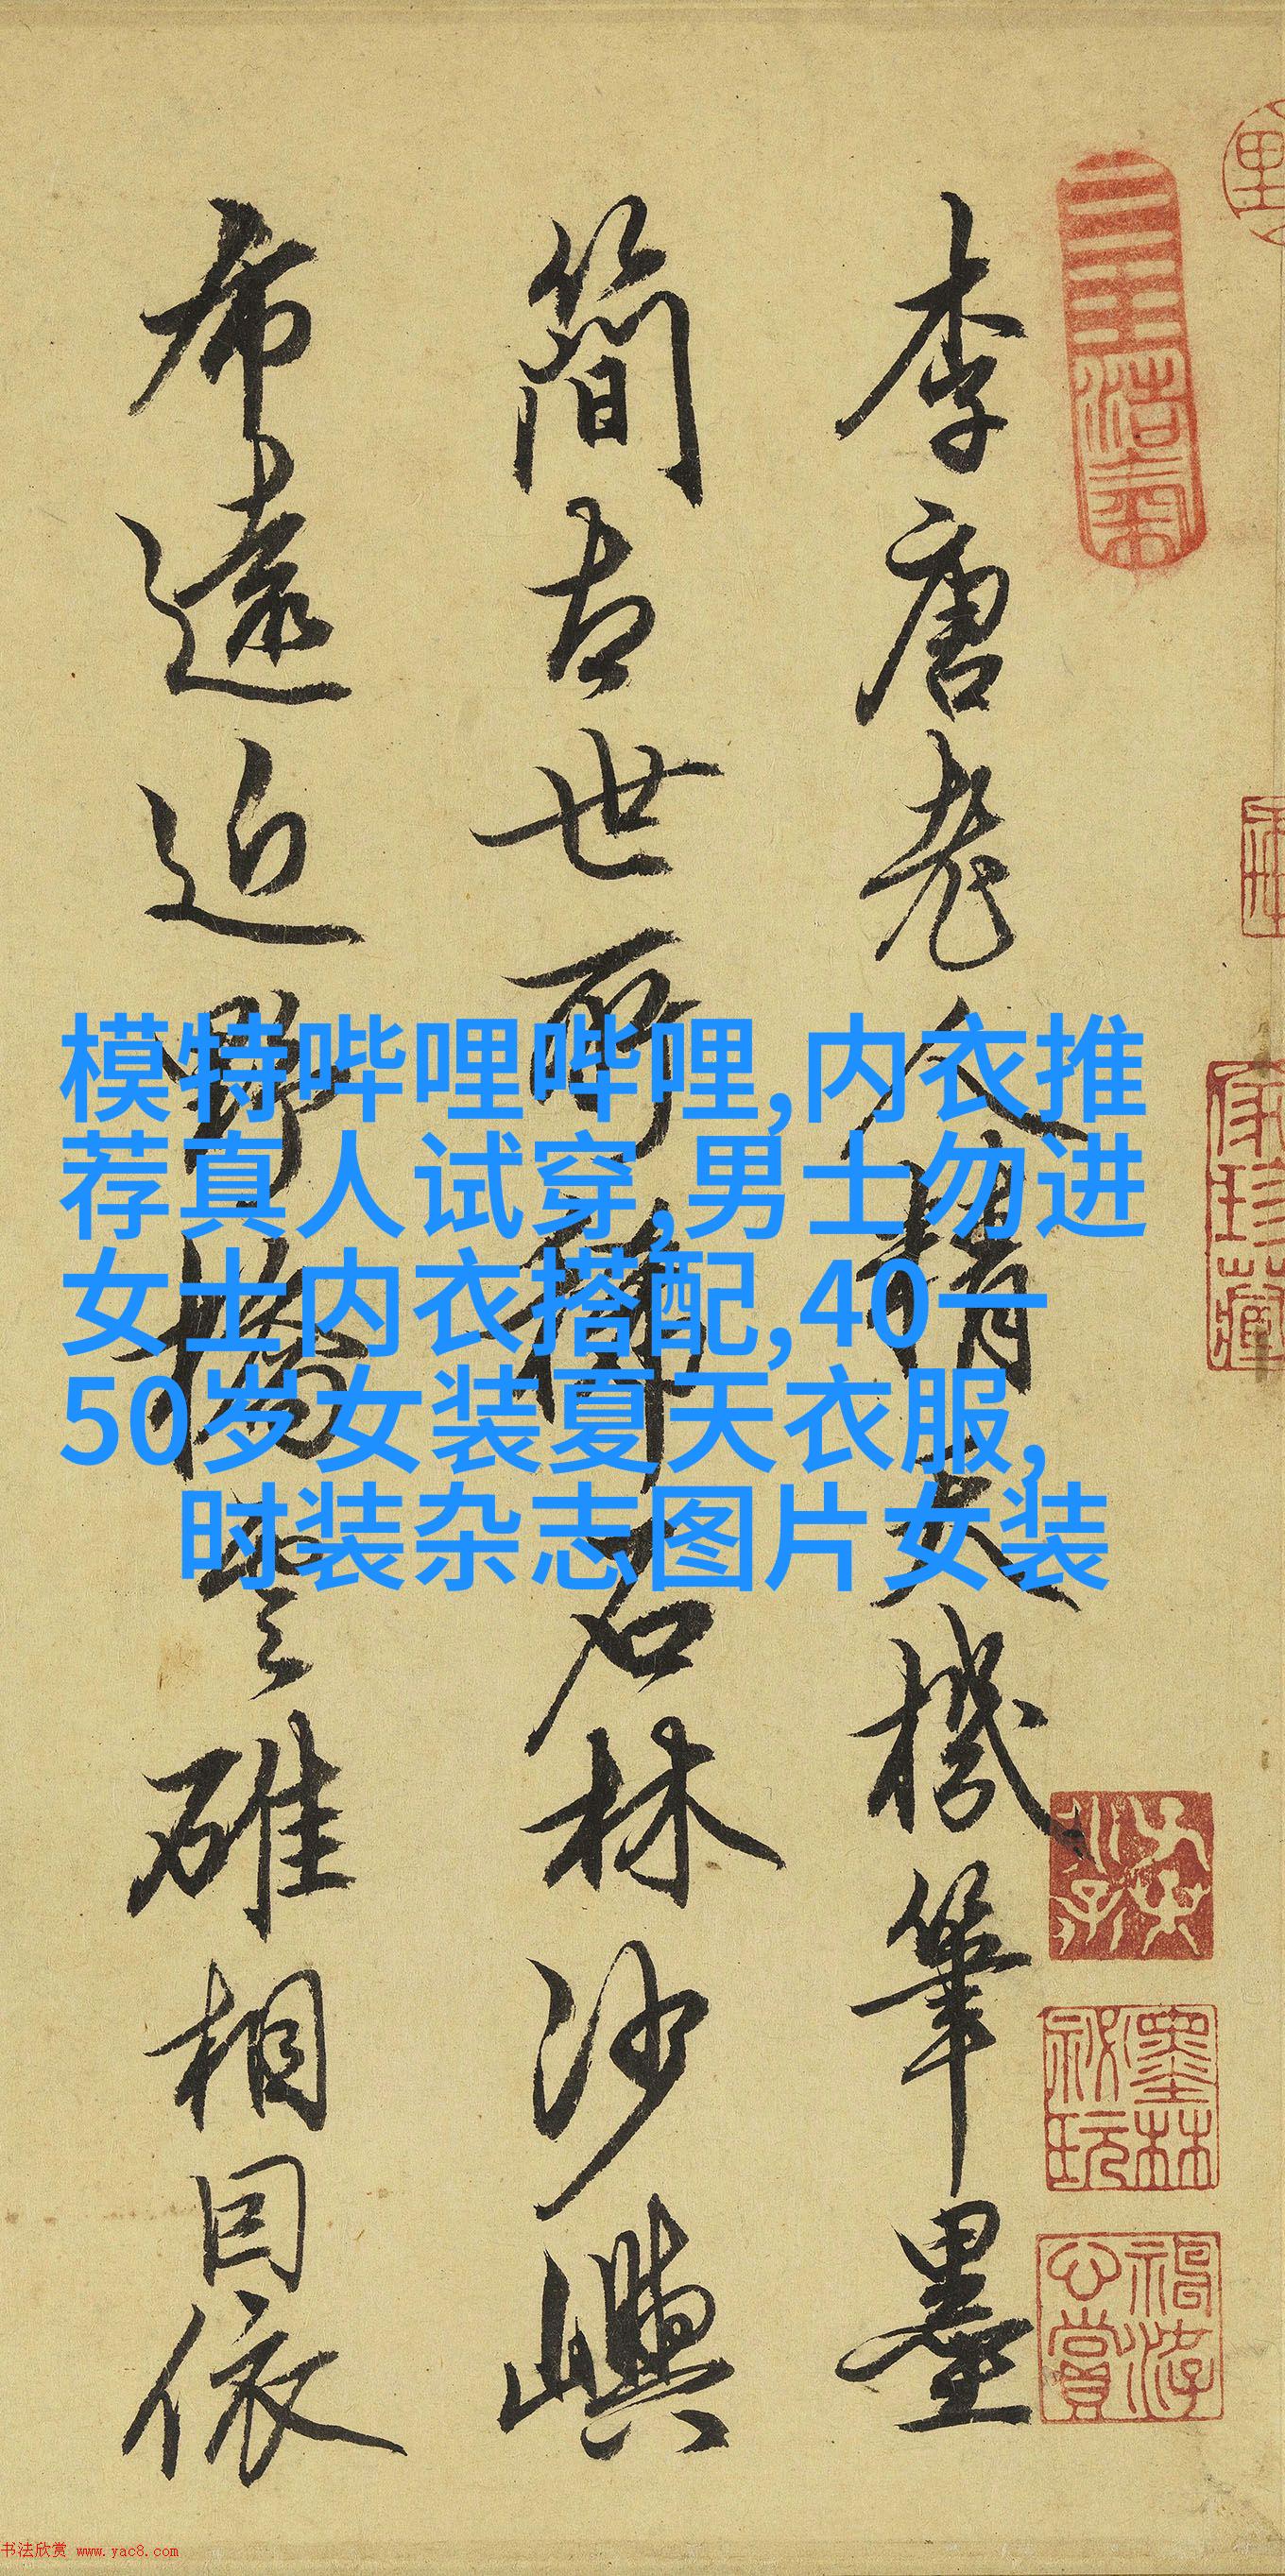 李唐老人精天機筆墨
簡古世所稱石林沙嶼
布遠近野橋豐碓相因依
模特哔哩哔哩,内衣推
荐真人试穿,男士勿进
女士内衣搭配,40一
50岁女装夏天衣服,
时装杂志图片女装
墨林祕玩
书法欣赏 www.yac8.com